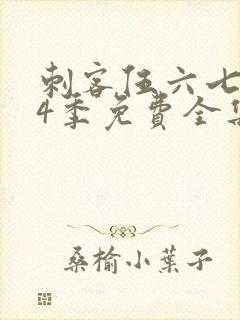 刺客伍六七
4季免費全集
桑榆小葉子